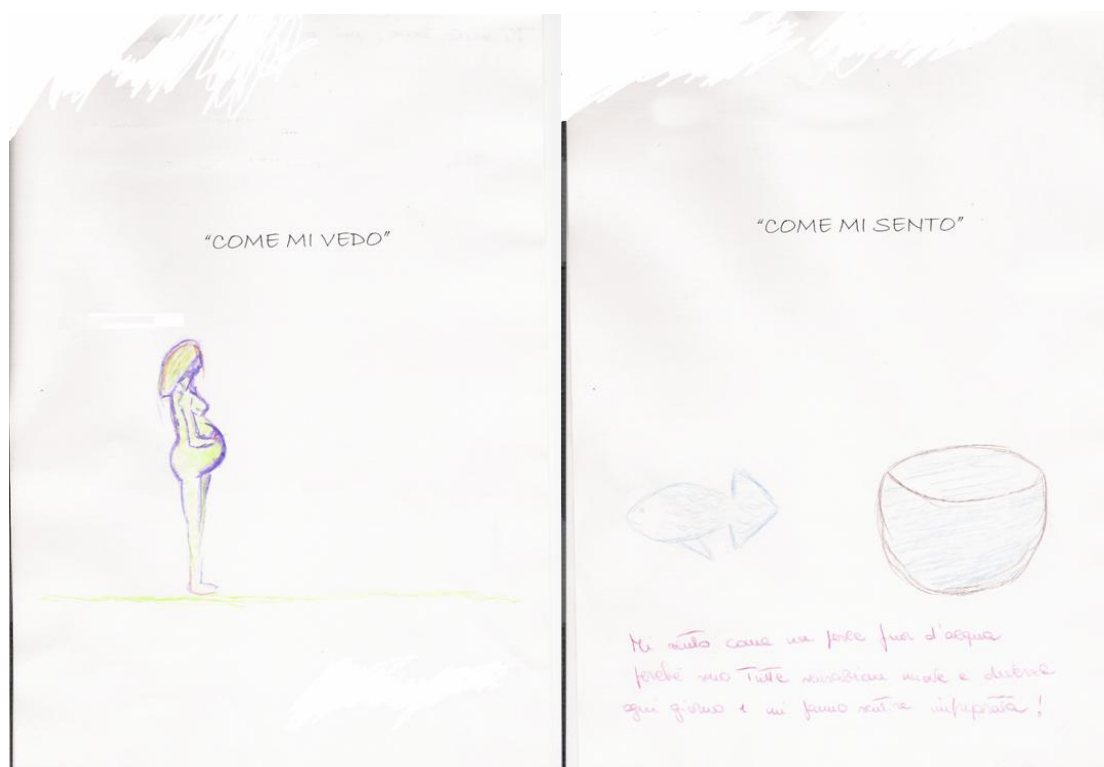 “COME MI VEDO”
“COME MI SENTO”
Mi sento come un pesce fuor d'acqua
perché sono Tutte sensazioni nuove e diverse
ogni giorno e mi fanno sentire impreparata!